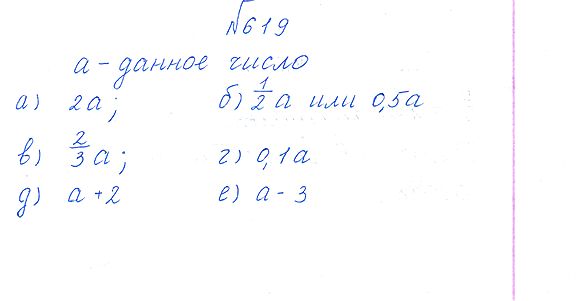 №619
а - данное число
а) 2а; б) 1/2 а или 0,5а
в) 2/3 а; г) 0,1а
д) а + 2 е) а - 3